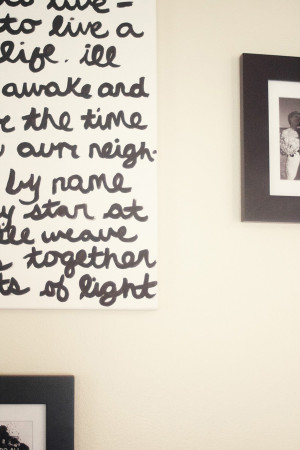 to live -
to live a
life. ill
awake and
the time
aurr neigh-
by name
star at
weave
together
of light